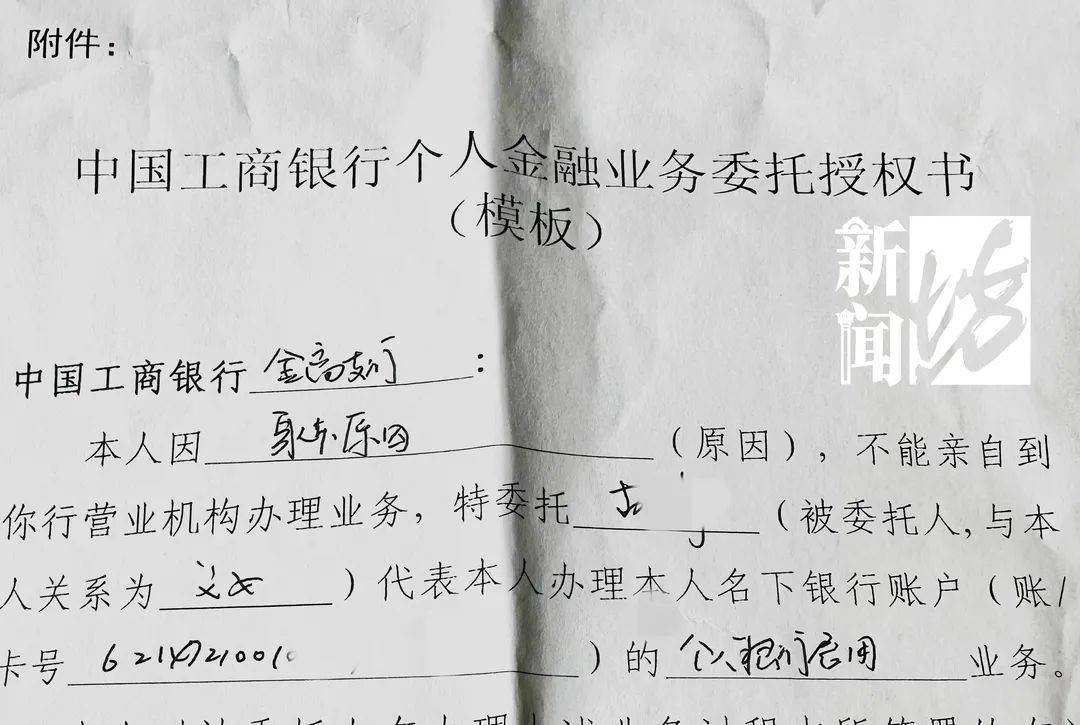 附件：
中国工商银行个人金融业务委托授权书
（模板）
新闻坊
中国工商银行金高支行：
本人因身体原因（原因），不能亲自到
你行营业机构办理业务，特委托古（被委托人,与本
人关系为父女）代表本人办理本人名下银行账户（账/
卡号 621721001）的个人银行启用业务。